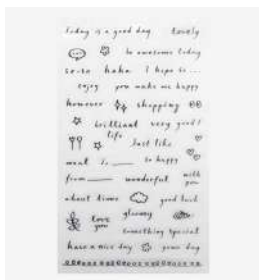 today is a good day lovely
be awesome today
so-so haha I hope to ...
enjoy you make me happy
however shopping
brilliant very good!
life
Just like
meal is ____ so happy
with
from ____ wonderful you
about times good luck
love gloomy
you
something special
have a nice day your day